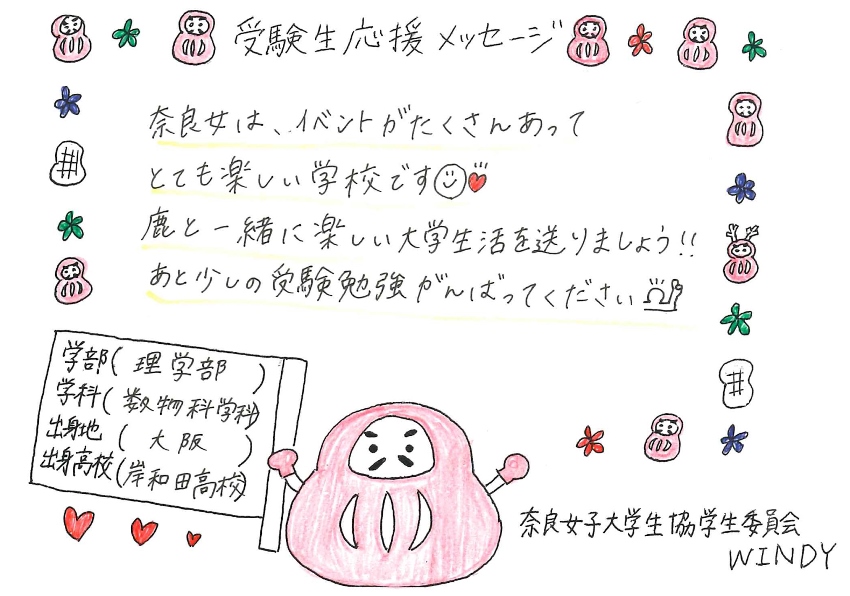 受験生応援メッセージ
奈良女は、イベントがたくさんあって
とても楽しい学校です
鹿と一緒に楽しい大学生活を送りましょう!!
あと少しの受験勉強がんばってください
学部(理学部)
学科(数物科学科)
出身地(大阪)
出身高校(岸和田高校)
奈良女子大学生協学生委員会
WINDY